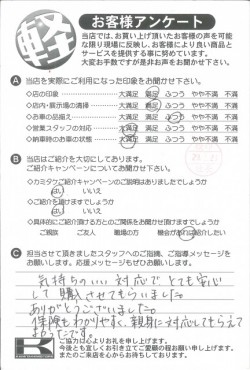 軽
お客様アンケート
当店では、お買い上げ頂いたお客様の声を可能
な限り現場に反映し、お客様により良い商品と
サービスを提供する事に努めています。
大変お手数ですが是非お声をお聞かせ下さい。
A 当店を実際にご利用になった印象をお聞かせ下さい。
◇店の印象 大満足 満足 ふつう やや不満 不満
◇店内・展示場の清掃 大満足 満足 ふつう やや不満 不満
◇お車の品揃え 大満足 満足 ふつう やや不満 不満
◇営業スタッフの対応 大満足 満足 ふつう やや不満 不満
◇納車時のお車の状態 大満足 満足 ふつう やや不満 不満
B 当店はご紹介を大切にしております。
ご紹介キャンペーンについてお聞かせ下さい。
◇カミタケご紹介キャンペーンのご説明はありましたでしょうか
はい いいえ
◇ご紹介を頂けますでしょうか
はい いいえ
◇具体的にご紹介頂ける方とのご関係をお聞かせ頂けますでしょうか
ご親族 ご友人 職場の方 機会があれば紹介したい
C 担当させて頂きましたスタッフへのご指摘、ご指導メッセージを
お願いします。応援メッセージもぜひお願いします。
気持ちのいい対応で、とても安心
して購入させてもらいました。
ありがとうございました。
保険もわかりやすく、親身に対応してもらえて
よかったです。
K
ご協力に心よりお礼を申し上げます。
今後とも宜しくお引き立てご愛顧の程お願い申し上げます。
またのご来店を心からお待ちしております。